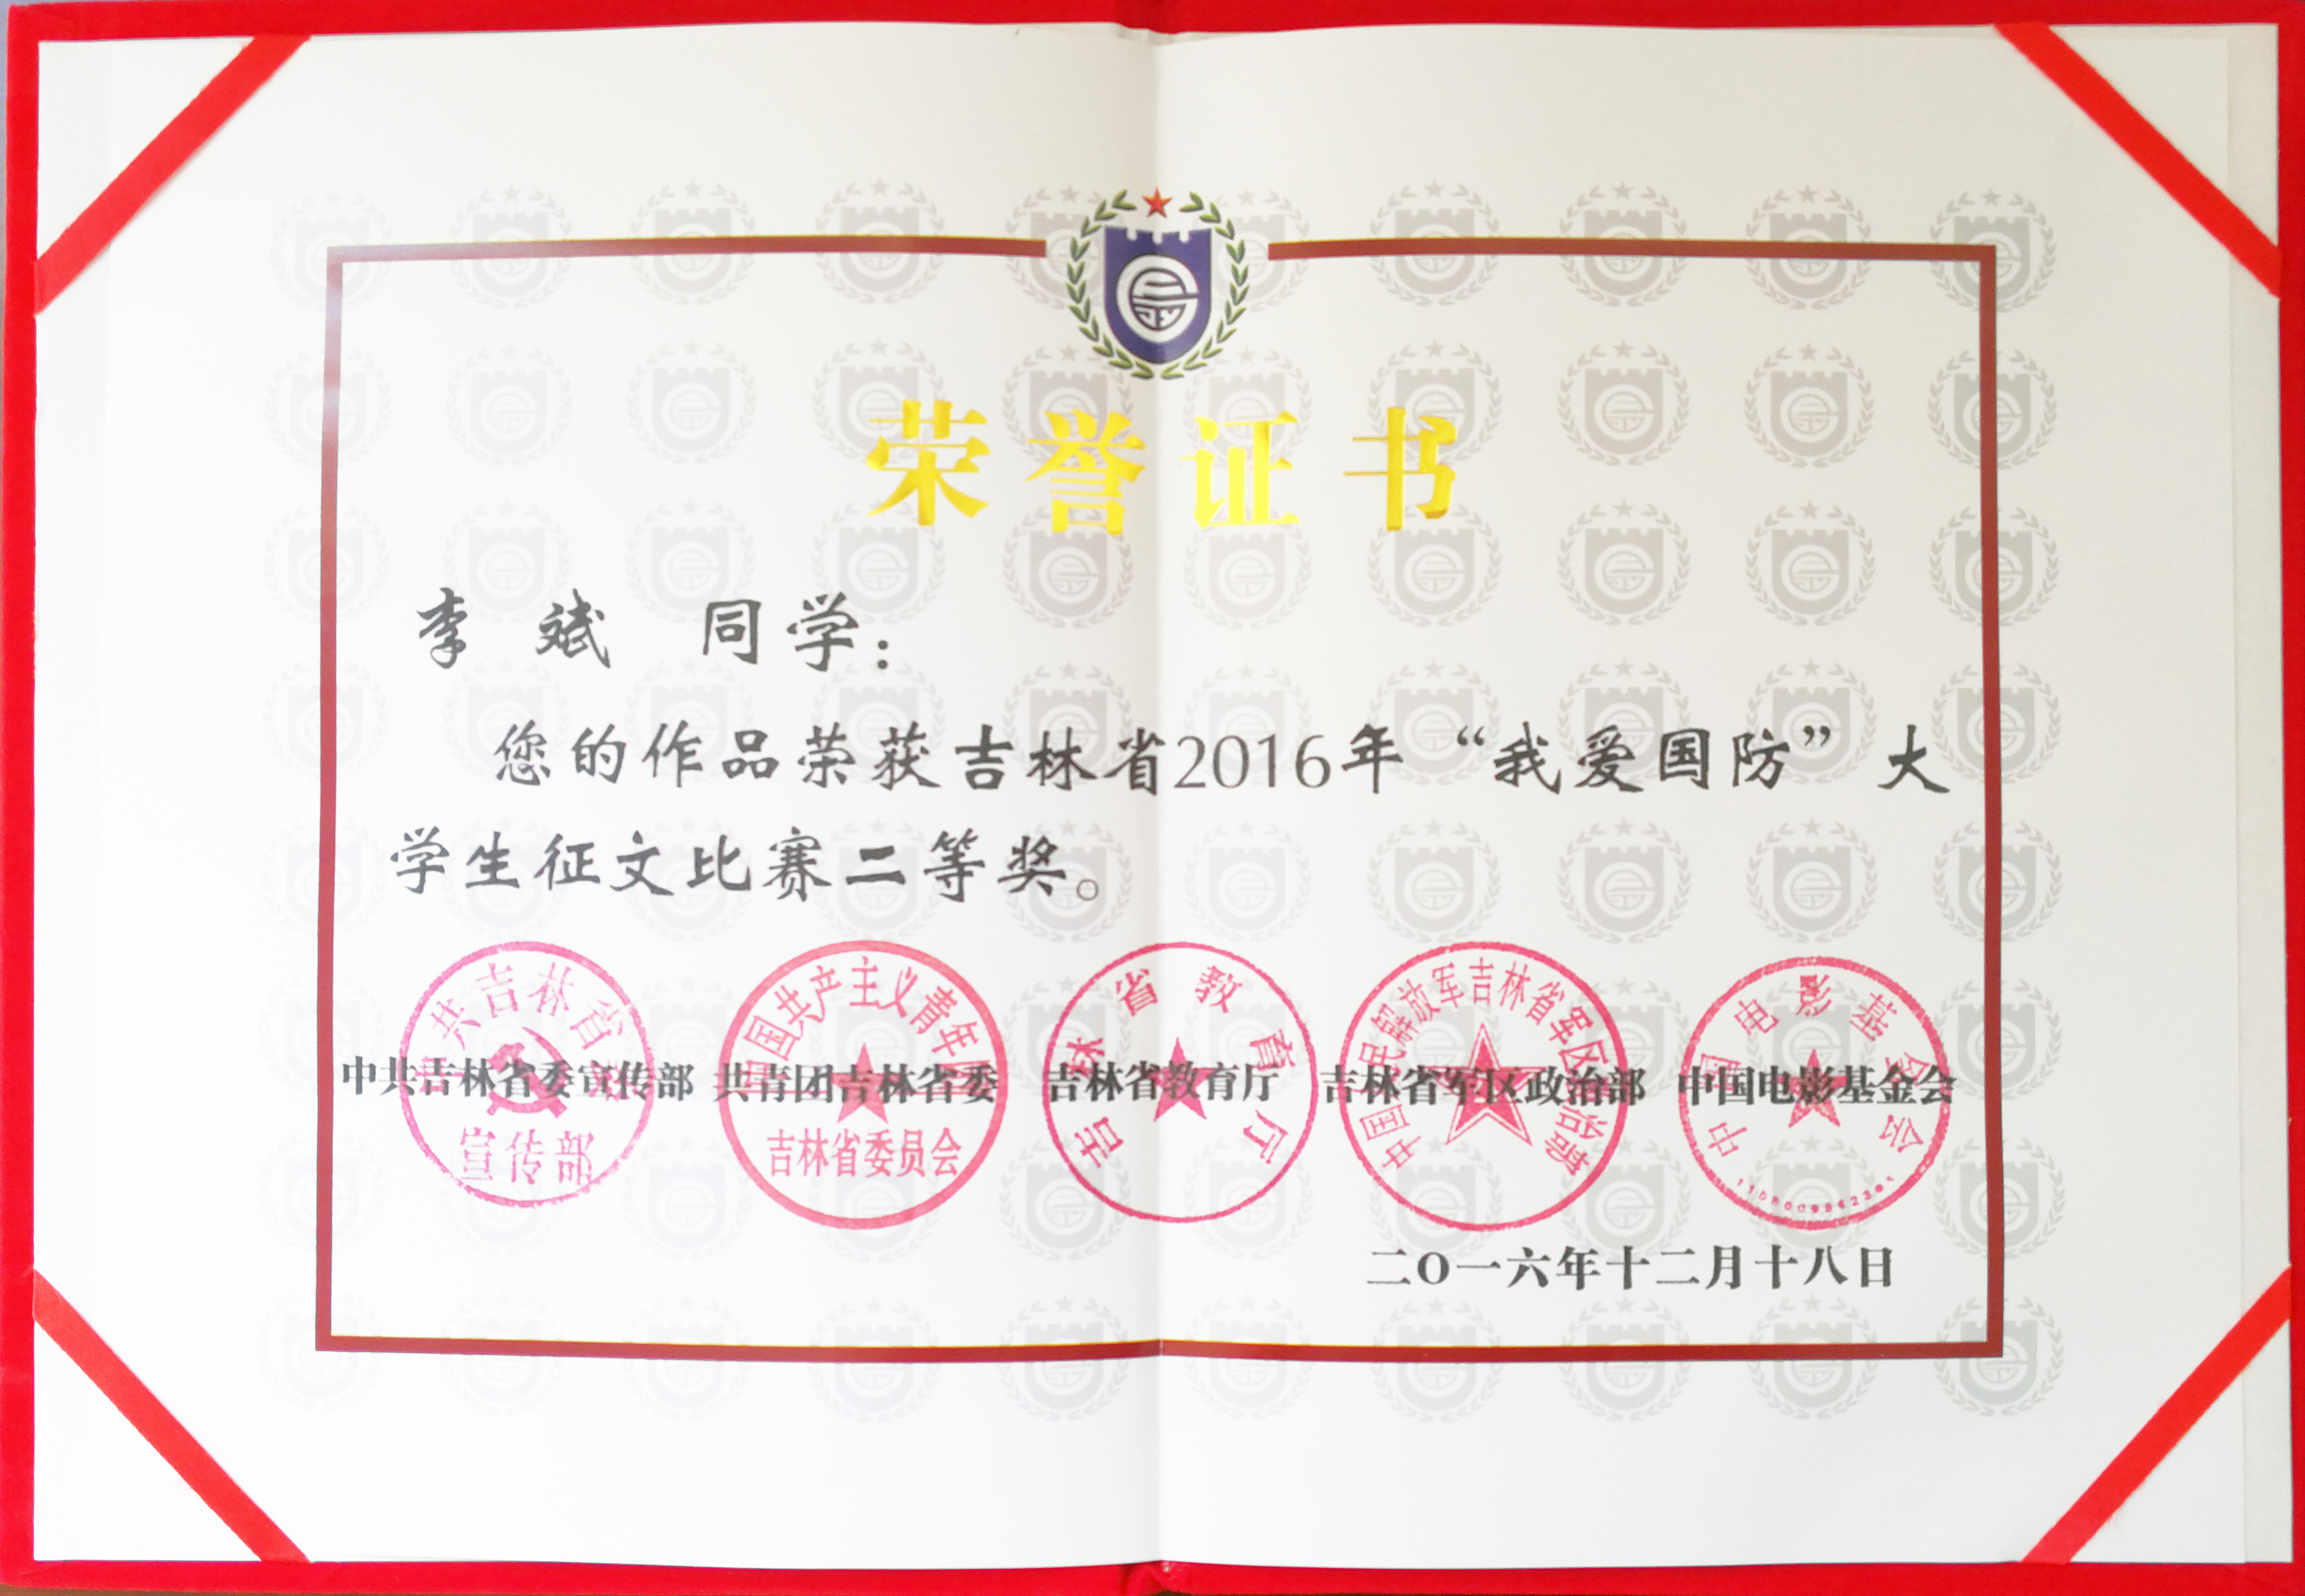 荣誉证书
李 斌 同学：
您的作品荣获吉林省2016年“我爱国防”大
学生征文比赛二等奖。
中共吉林省委宣传部 共青团吉林省委 吉林省教育厅 吉林省军区政治部 中国电影基金会
中共吉林省委
宣传部
中国共产主义青年团
吉林省委员会
吉林省教育厅
中国人民解放军吉林省军区政治部
中国电影基金会
二〇一六年十二月十八日